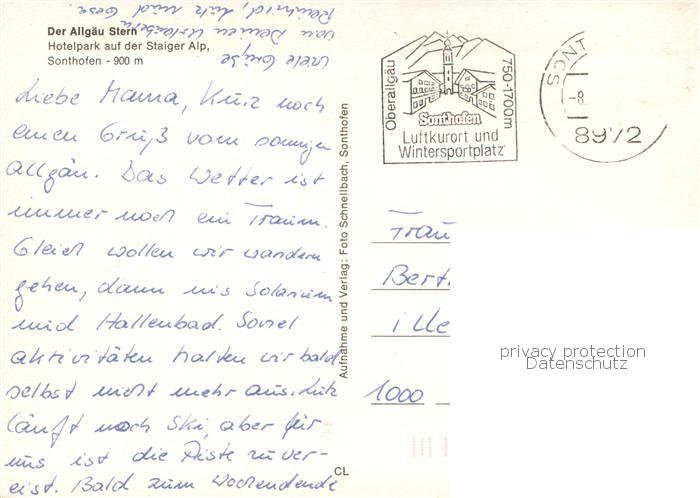 Der Allgäu Stern
Hotelpark auf der Staiger Alp,
Sonthofen - 900 m
Liebe Mama, Kurz noch
einen Gruß vom sonnigen
Allgäu. Das Wetter ist
immer noch ein Traum.
Gleich wollen wir wandern
gehen, dann ins Solarium
und Hallenbad. Soviel
aktivitäten halten wir bald
selbst nicht mehr aus. Lutz
läuft noch Ski, aber für
uns ist die Piste zu ver-
eist. Bald zum Wochenende
Viele Grüße
von Deinen Urlaubern
Lutz und
Aufnahme und Verlag: Foto Schnellbach, Sonthofen
CL
Oberallgäu
750-1700m
Sonthofen
Luftkurort und
Wintersportplatz
SONT
-8.
8972
Frau
Bert
1000
privacy protection
Datenschutz